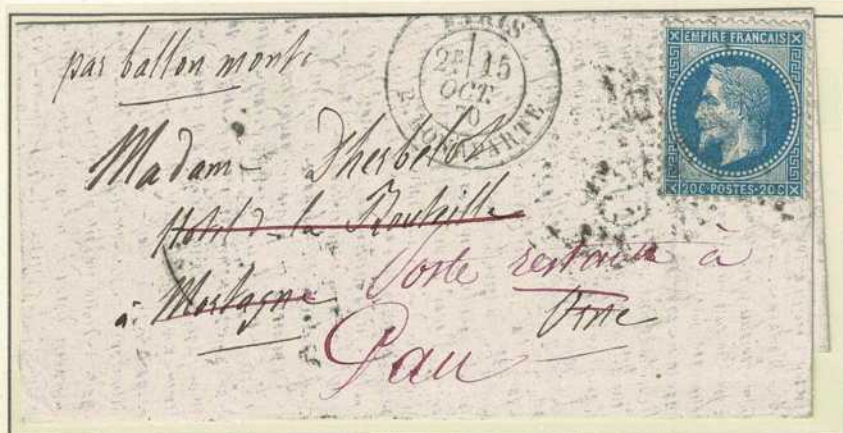 par ballon monté
PARIS
2E 15
OCT.
70
R. BONAPARTE
EMPIRE FRANÇAIS
20C·POSTES·20C
Madame Dherbelot
Hotel de la Bouteille
à Mortagne
Orne
Poste restante à
Pau